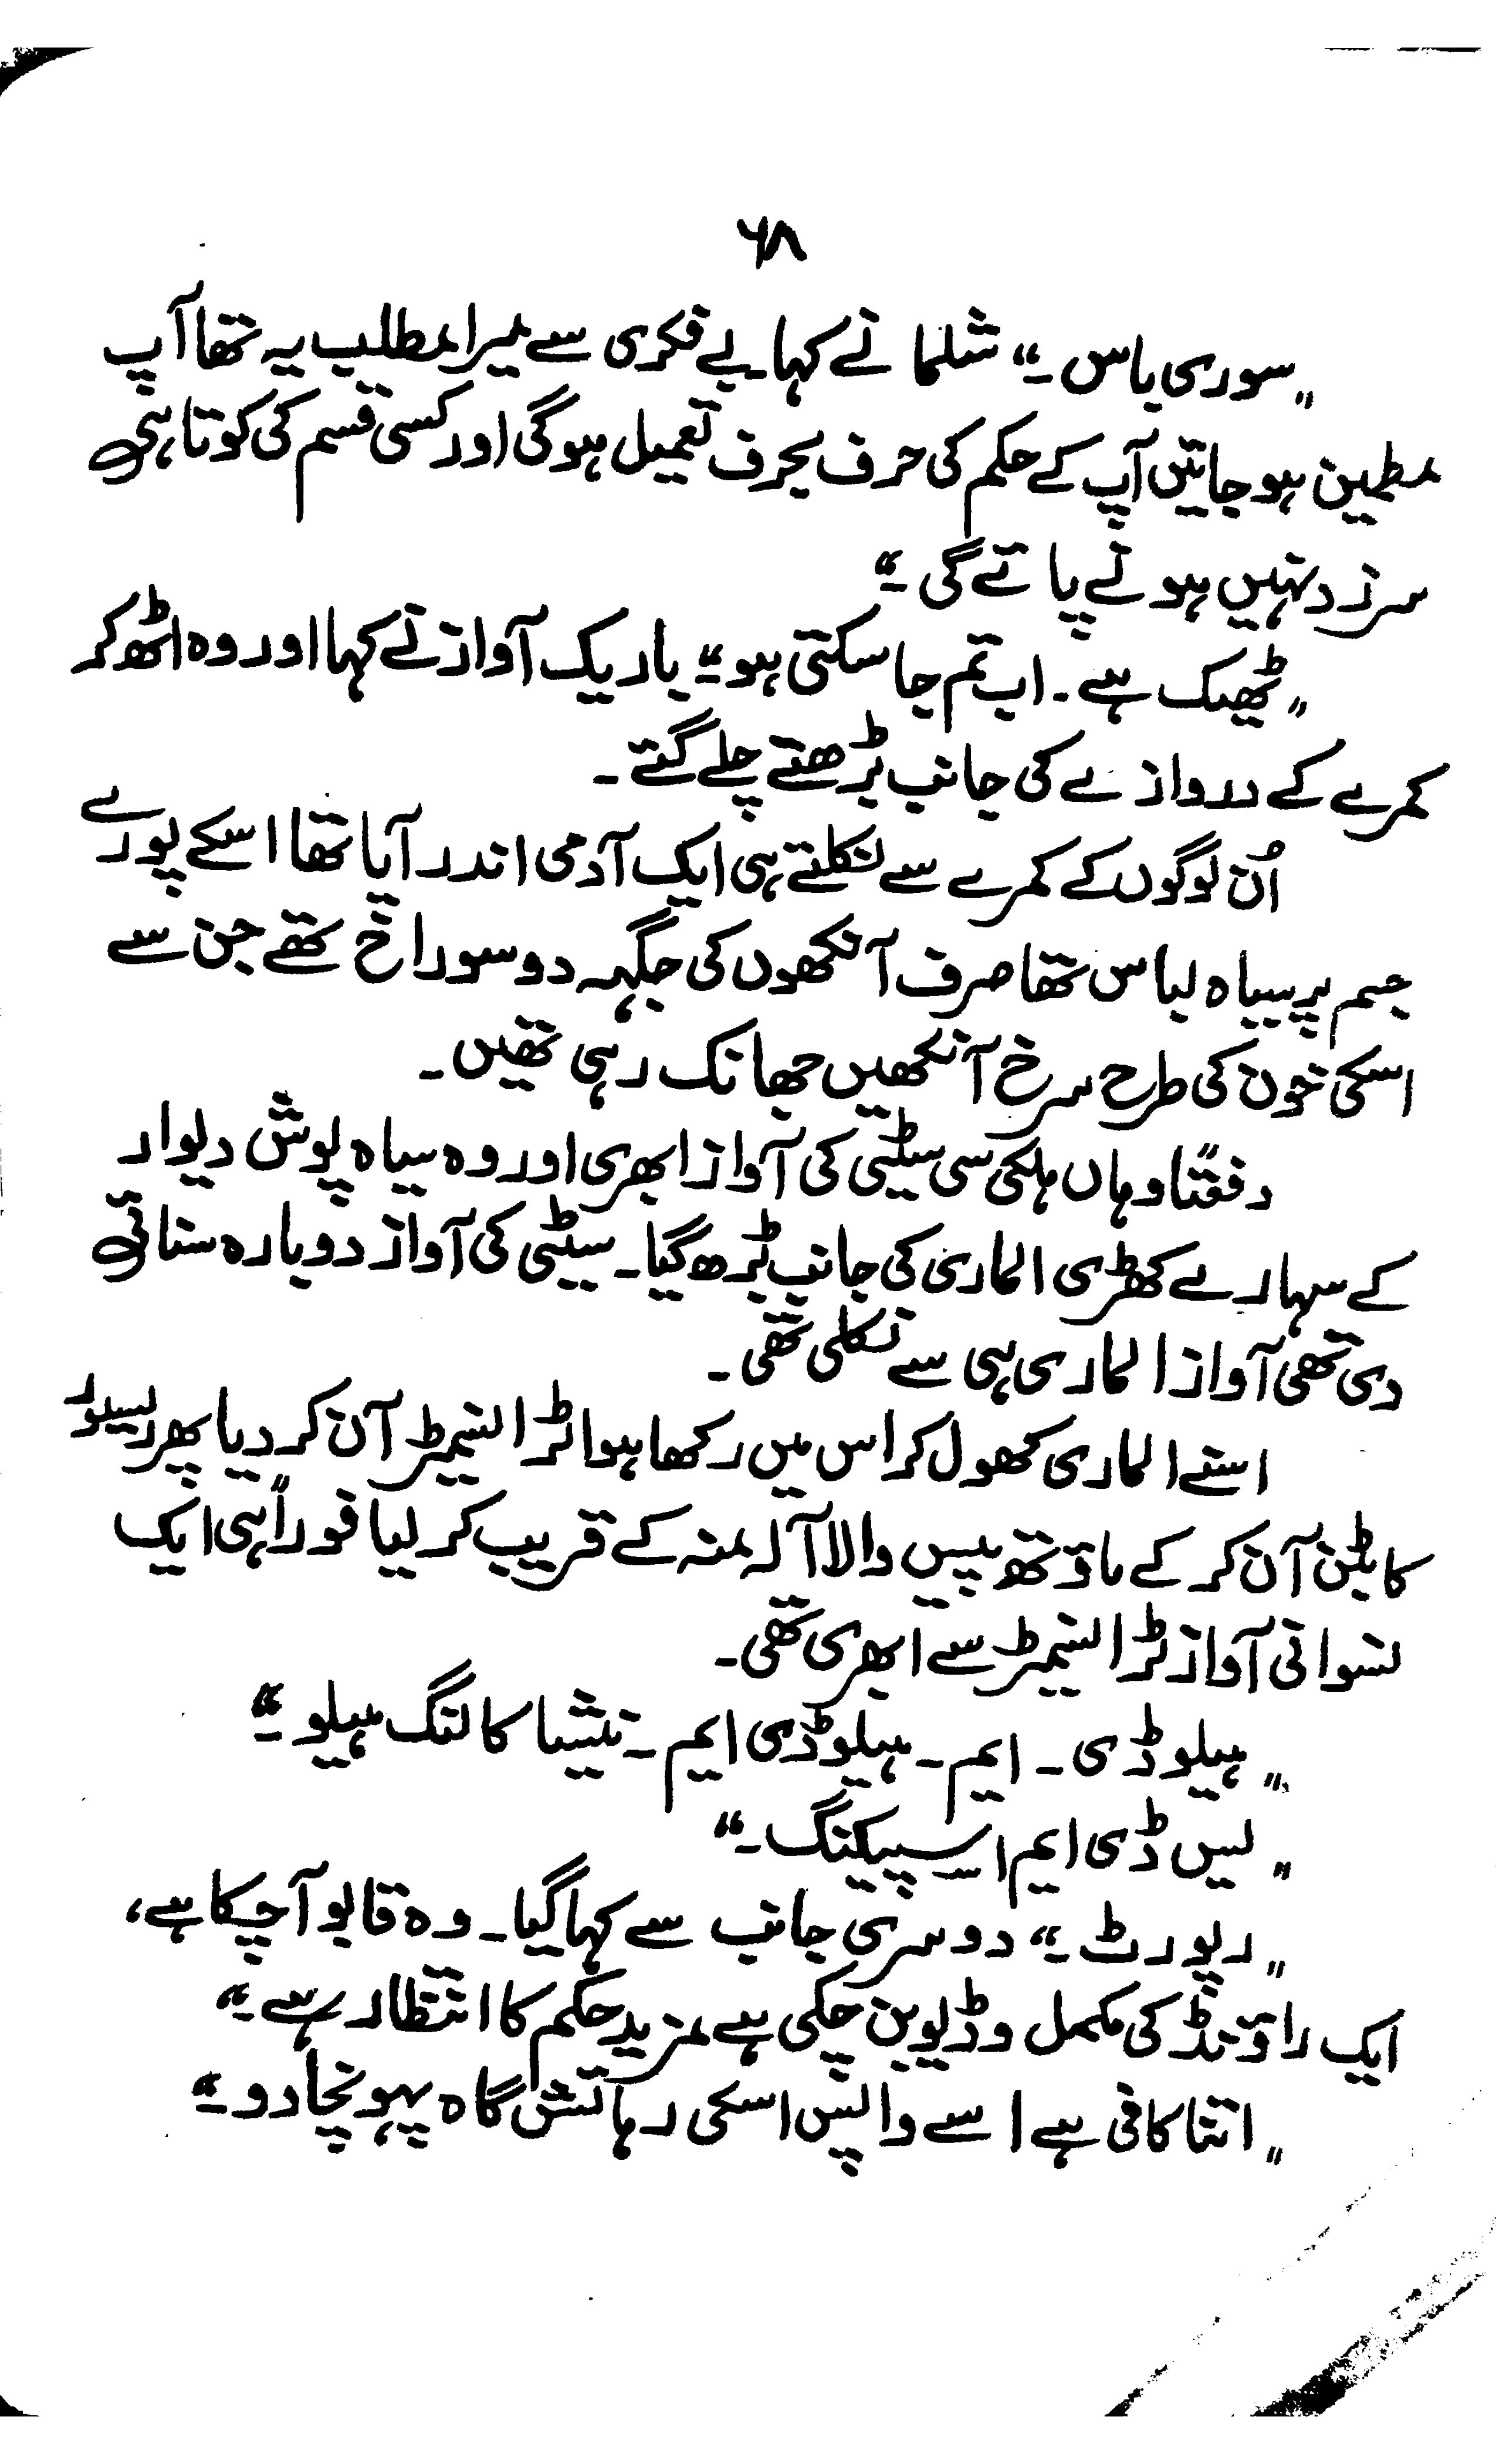 ۶۸
"سوری باس۔" شلما نے کہا۔ بے فکری سے میرا مطلب یہ تھا آپ
مطمین ہو جائیں آپ کے حکم کی حرف بحرف تعمیل ہوگی اور کسی قسم کی کوتاہی
سرزد نہیں ہونے پائے گی۔"
"ٹھیک ہے۔ اب تم جا سکتی ہو۔" باریک آواز نے کہا اور وہ اٹھ کر
کمرے کے دروازے کی جانب بڑھتے چلے گئے۔
اُن لوگوں کے کمرے سے نکلتے ہی ایک آدمی اندر آیا تھا اسکے پورے
جسم پر سیاہ لباس تھا صرف آنکھوں کی جگہہ دو سوراخ تھے جن سے
اسکی خون کی طرح سرخ آنکھیں جھانک رہی تھیں۔
دفعتًا وہاں ہلکی سی سیٹی کی آواز ابھری اور وہ سیاہ پوش دیوار
کے سہارے کھڑی الماری کی جانب بڑھ گیا۔ سیٹی کی آواز دوبارہ سنائی
دی تھی آواز الماری ہی سے نکلی تھی۔
اسنے الماری کھول کر اس میں رکھا ہوا ٹرانسیمٹر آن کر دیا پھر رسیور
کا بٹن آن کر کے ماؤتھ پیس والا آلہ منہ کے قریب کر لیا فوراً ہی ایک
نسوانی آواز ٹرانسیمٹر سے ابھری تھی۔
"ہیلو ڈی۔ ایم۔ ہیلو ڈی ایم۔ نیشیا کالنگ ہیلو۔"
"یس ڈی ایم اسپیکنگ۔"
"رپورٹ۔" دوسری جانب سے کہا گیا۔ وہ قابو آ چکا ہے،
ایک راؤنڈ کی مکمل وڈیو بن چکی ہے مزید حکم کا انتظار ہے۔"
"اتنا کافی ہے اسے واپس اسکی رہائش گاہ پہونچا دو۔"